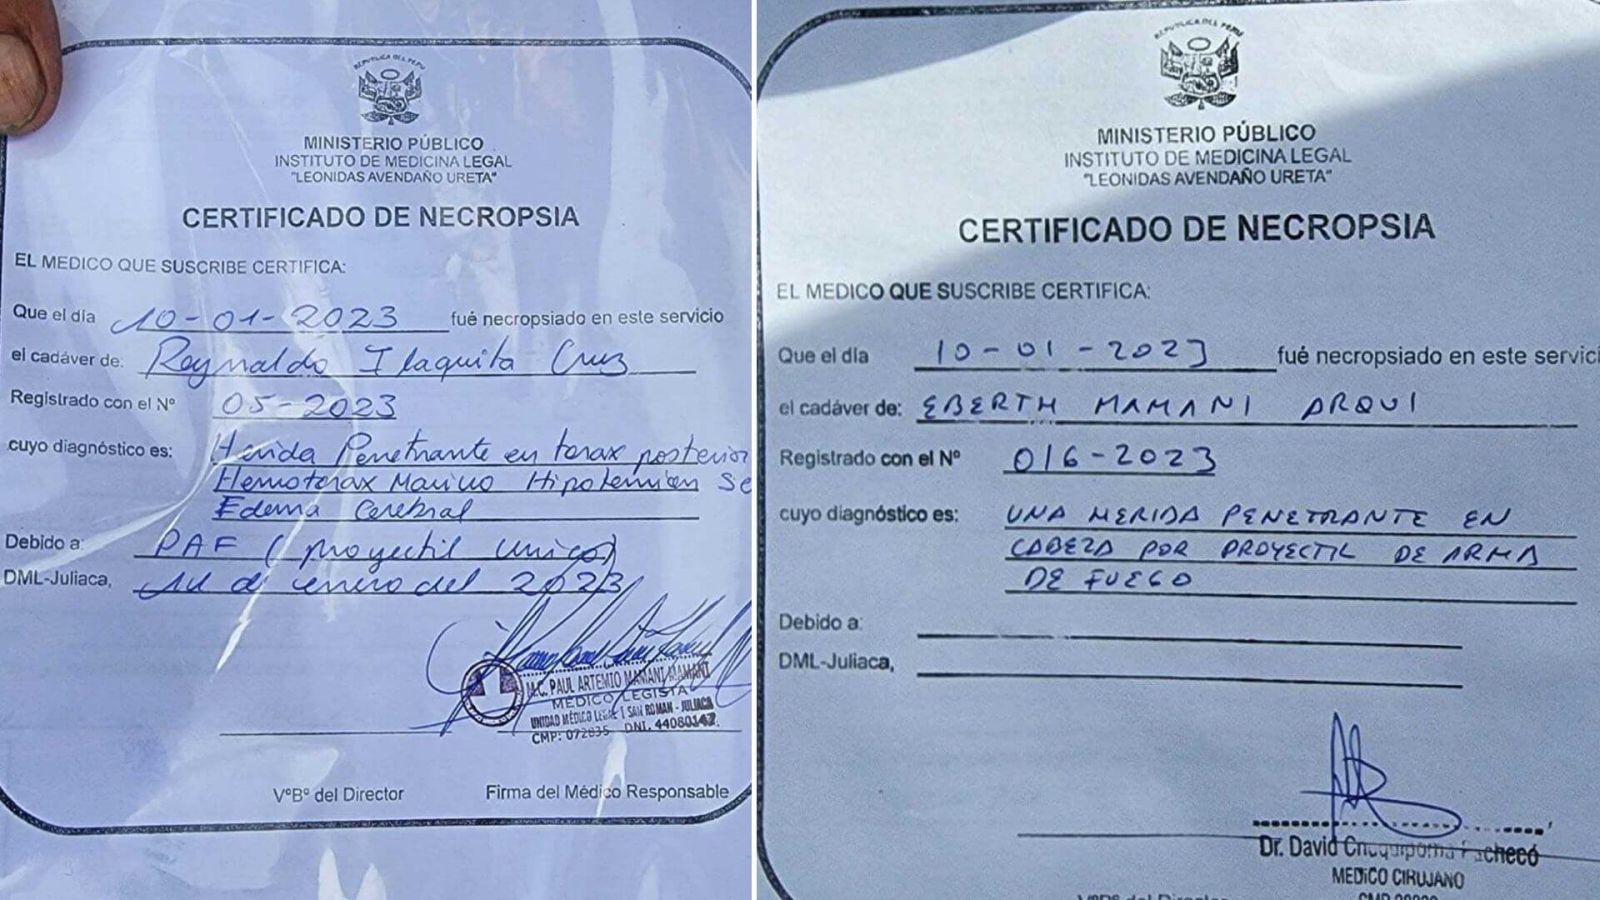 REPÚBLICA DEL PERÚ
MINISTERIO PÚBLICO
INSTITUTO DE MEDICINA LEGAL
"LEONIDAS AVENDAÑO URETA"
CERTIFICADO DE NECROPSIA
EL MEDICO QUE SUSCRIBE CERTIFICA:
Que el día 10-01-2023 fué necropsiado en este servicio
el cadáver de: Reynaldo Ilaquita Cruz
Registrado con el Nº 05-2023
cuyo diagnóstico es: Herida Penetrante en torax posterior
Hemotorax Masivo
Edema Cerebral
Debido a: PAF (proyectil unico)
DML-Juliaca, 11 de enero del 2023
M.C. PAUL ARTEMIO MAMANI MAMANI
MÉDICO LEGISTA
UNIDAD MÉDICO LEGAL I SAN ROMAN - JULIACA
CMP: 072835 DNI. 44080147
VºBº del Director Firma del Médico Responsable
REPÚBLICA DEL PERÚ
MINISTERIO PÚBLICO
INSTITUTO DE MEDICINA LEGAL
"LEONIDAS AVENDAÑO URETA"
CERTIFICADO DE NECROPSIA
EL MEDICO QUE SUSCRIBE CERTIFICA:
Que el día 10-01-2023 fué necropsiado en este servici
el cadáver de: EBERTH MAMANI ARQUI
Registrado con el Nº 016-2023
cuyo diagnóstico es: UNA HERIDA PENETRANTE EN
CABEZA POR PROYECTIL DE ARMA
DE FUEGO
Debido a:
DML-Juliaca,
Dr. David
MEDICO CIRUJANO
VºBº del Director